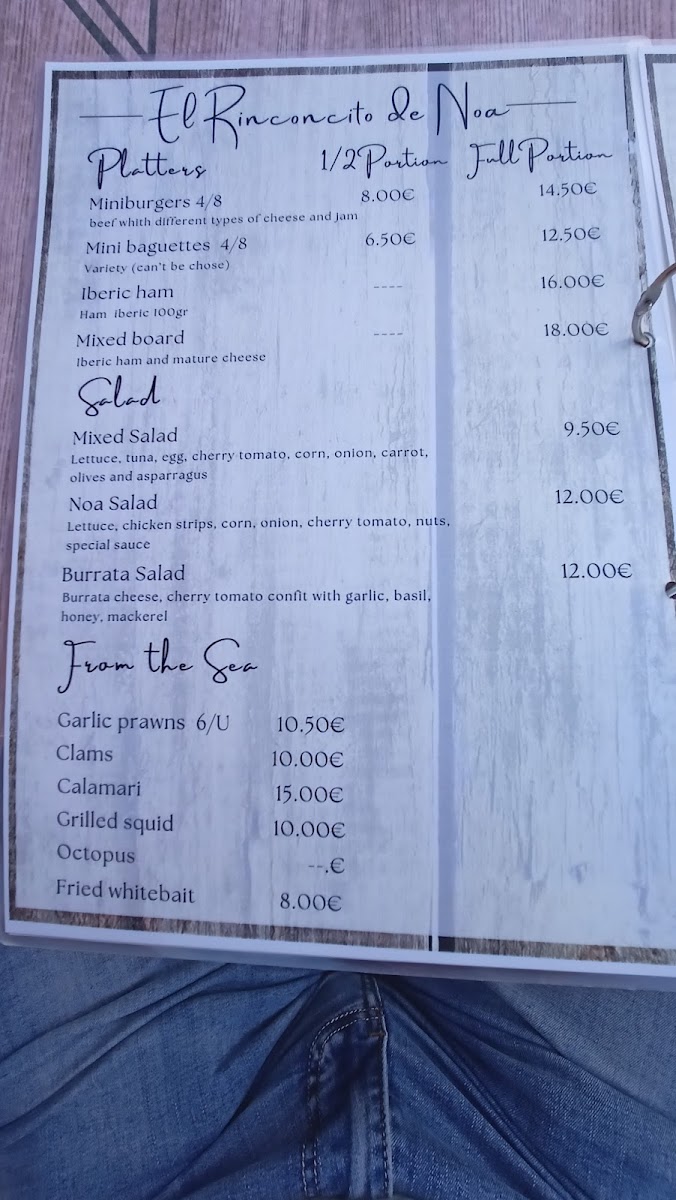 El Rinconcito de Noa
Platters 1/2 Portion Full Portion
Miniburgers 4/8 8.00€ 14.50€
beef whith different types of cheese and jam
Mini baguettes 4/8 6.50€ 12.50€
Variety (can't be chose)
Iberic ham ---- 16.00€
Ham iberic 100gr
Mixed board ---- 18.00€
Iberic ham and mature cheese
Salad
Mixed Salad 9.50€
Lettuce, tuna, egg, cherry tomato, corn, onion, carrot,
olives and asparragus
Noa Salad 12.00€
Lettuce, chicken strips, corn, onion, cherry tomato, nuts,
special sauce
Burrata Salad 12.00€
Burrata cheese, cherry tomato confit with garlic, basil,
honey, mackerel
From the Sea
Garlic prawns 6/U 10.50€
Clams 10.00€
Calamari 15.00€
Grilled squid 10.00€
Octopus --.€
Fried whitebait 8.00€